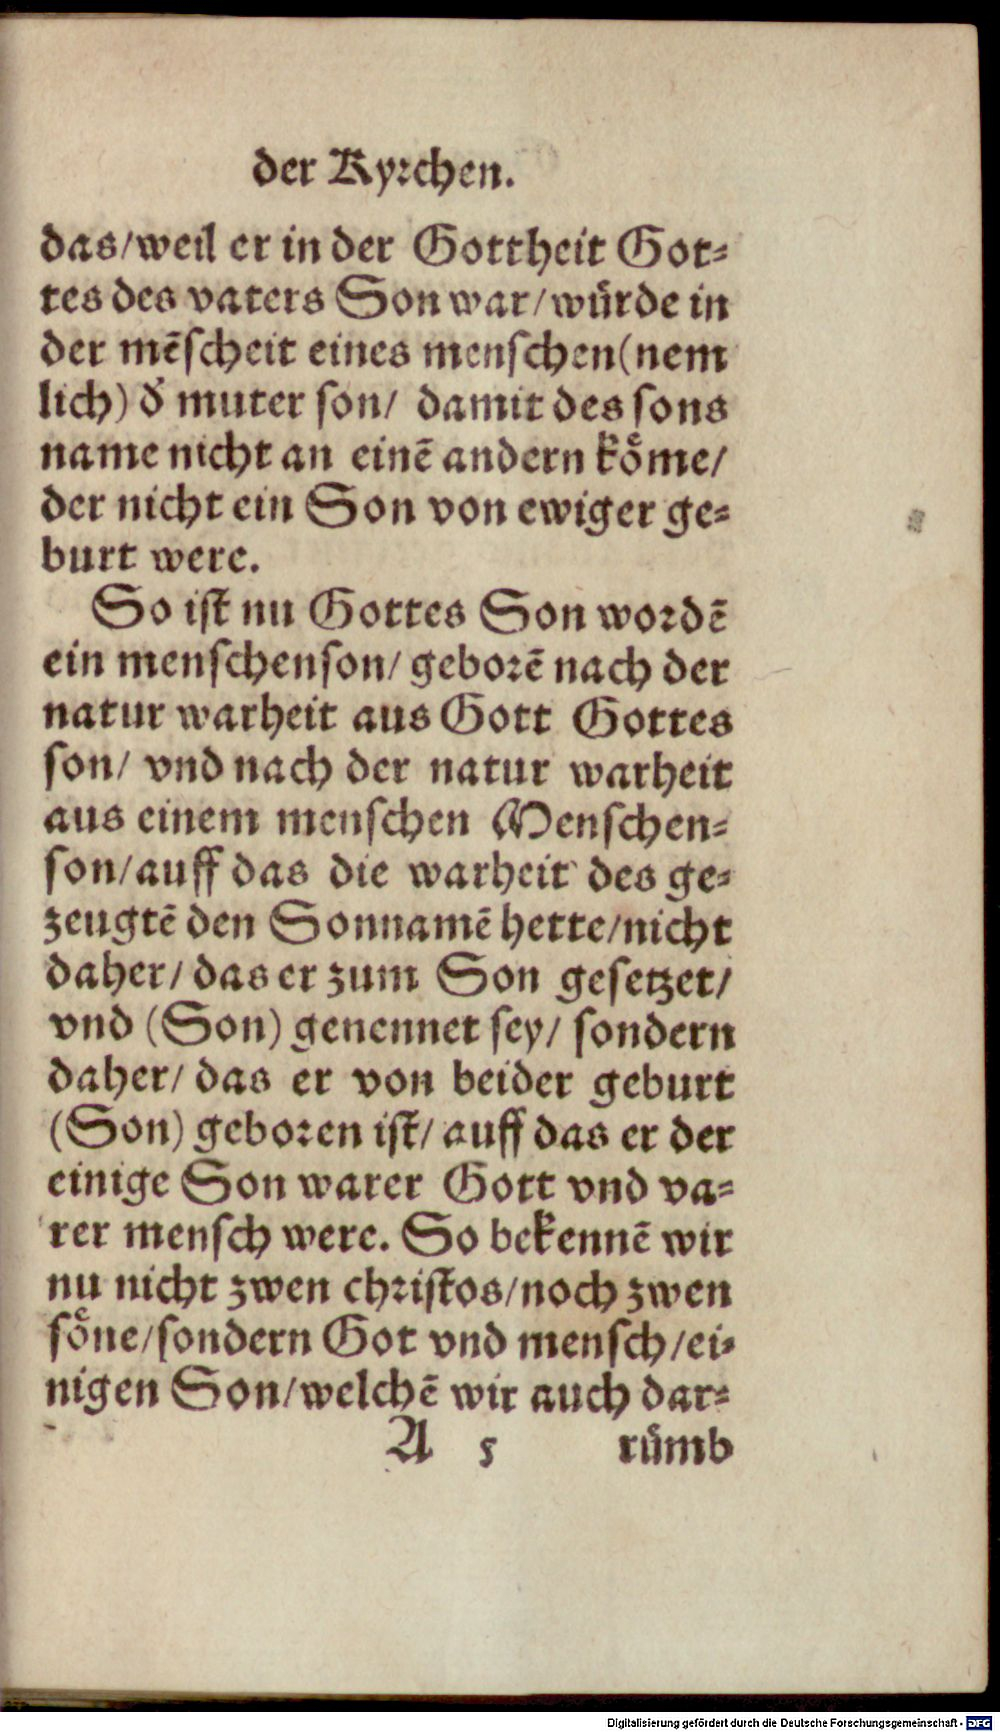 der Kyꝛchen.
das/weil er in der Gottheit Got⸗
tes des vaters Son war/wuͤrde in
der mēſcheit eines menſchen(nem
lich) ð muter ſon/ damit des ſons
name nicht an einē andern koͤme/
der nicht ein Son von ewiger ge⸗
burt were.
So iſt nu Gottes Son woꝛdē
ein menſchenſon/ geboꝛē nach der
natur warheit aus Gott Gottes
ſon/ vnd nach der natur warheit
aus einem menſchen Menſchen⸗
ſon/auff das die warheit des ge⸗
zeugtē den Sonnamē hette/nicht
daher/ das er zum Son geſetzet/
vnd (Son) genennet ſey/ ſondern
daher/ das er von beider geburt
(Son) geboꝛen iſt/ auff das er der
einige Son warer Gott vnd va⸗
rer menſch were. So bekennē wir
nu nicht zwen chꝛiſtos/noch zwen
ſoͤne/ſondern Got vnd menſch/ei⸗
nigen Son/welchē wir auch dar⸗
A 5 ruͤmb
Digitalisierung gefördert durch die Deutsche Forschungsgemeinschaft - DFG